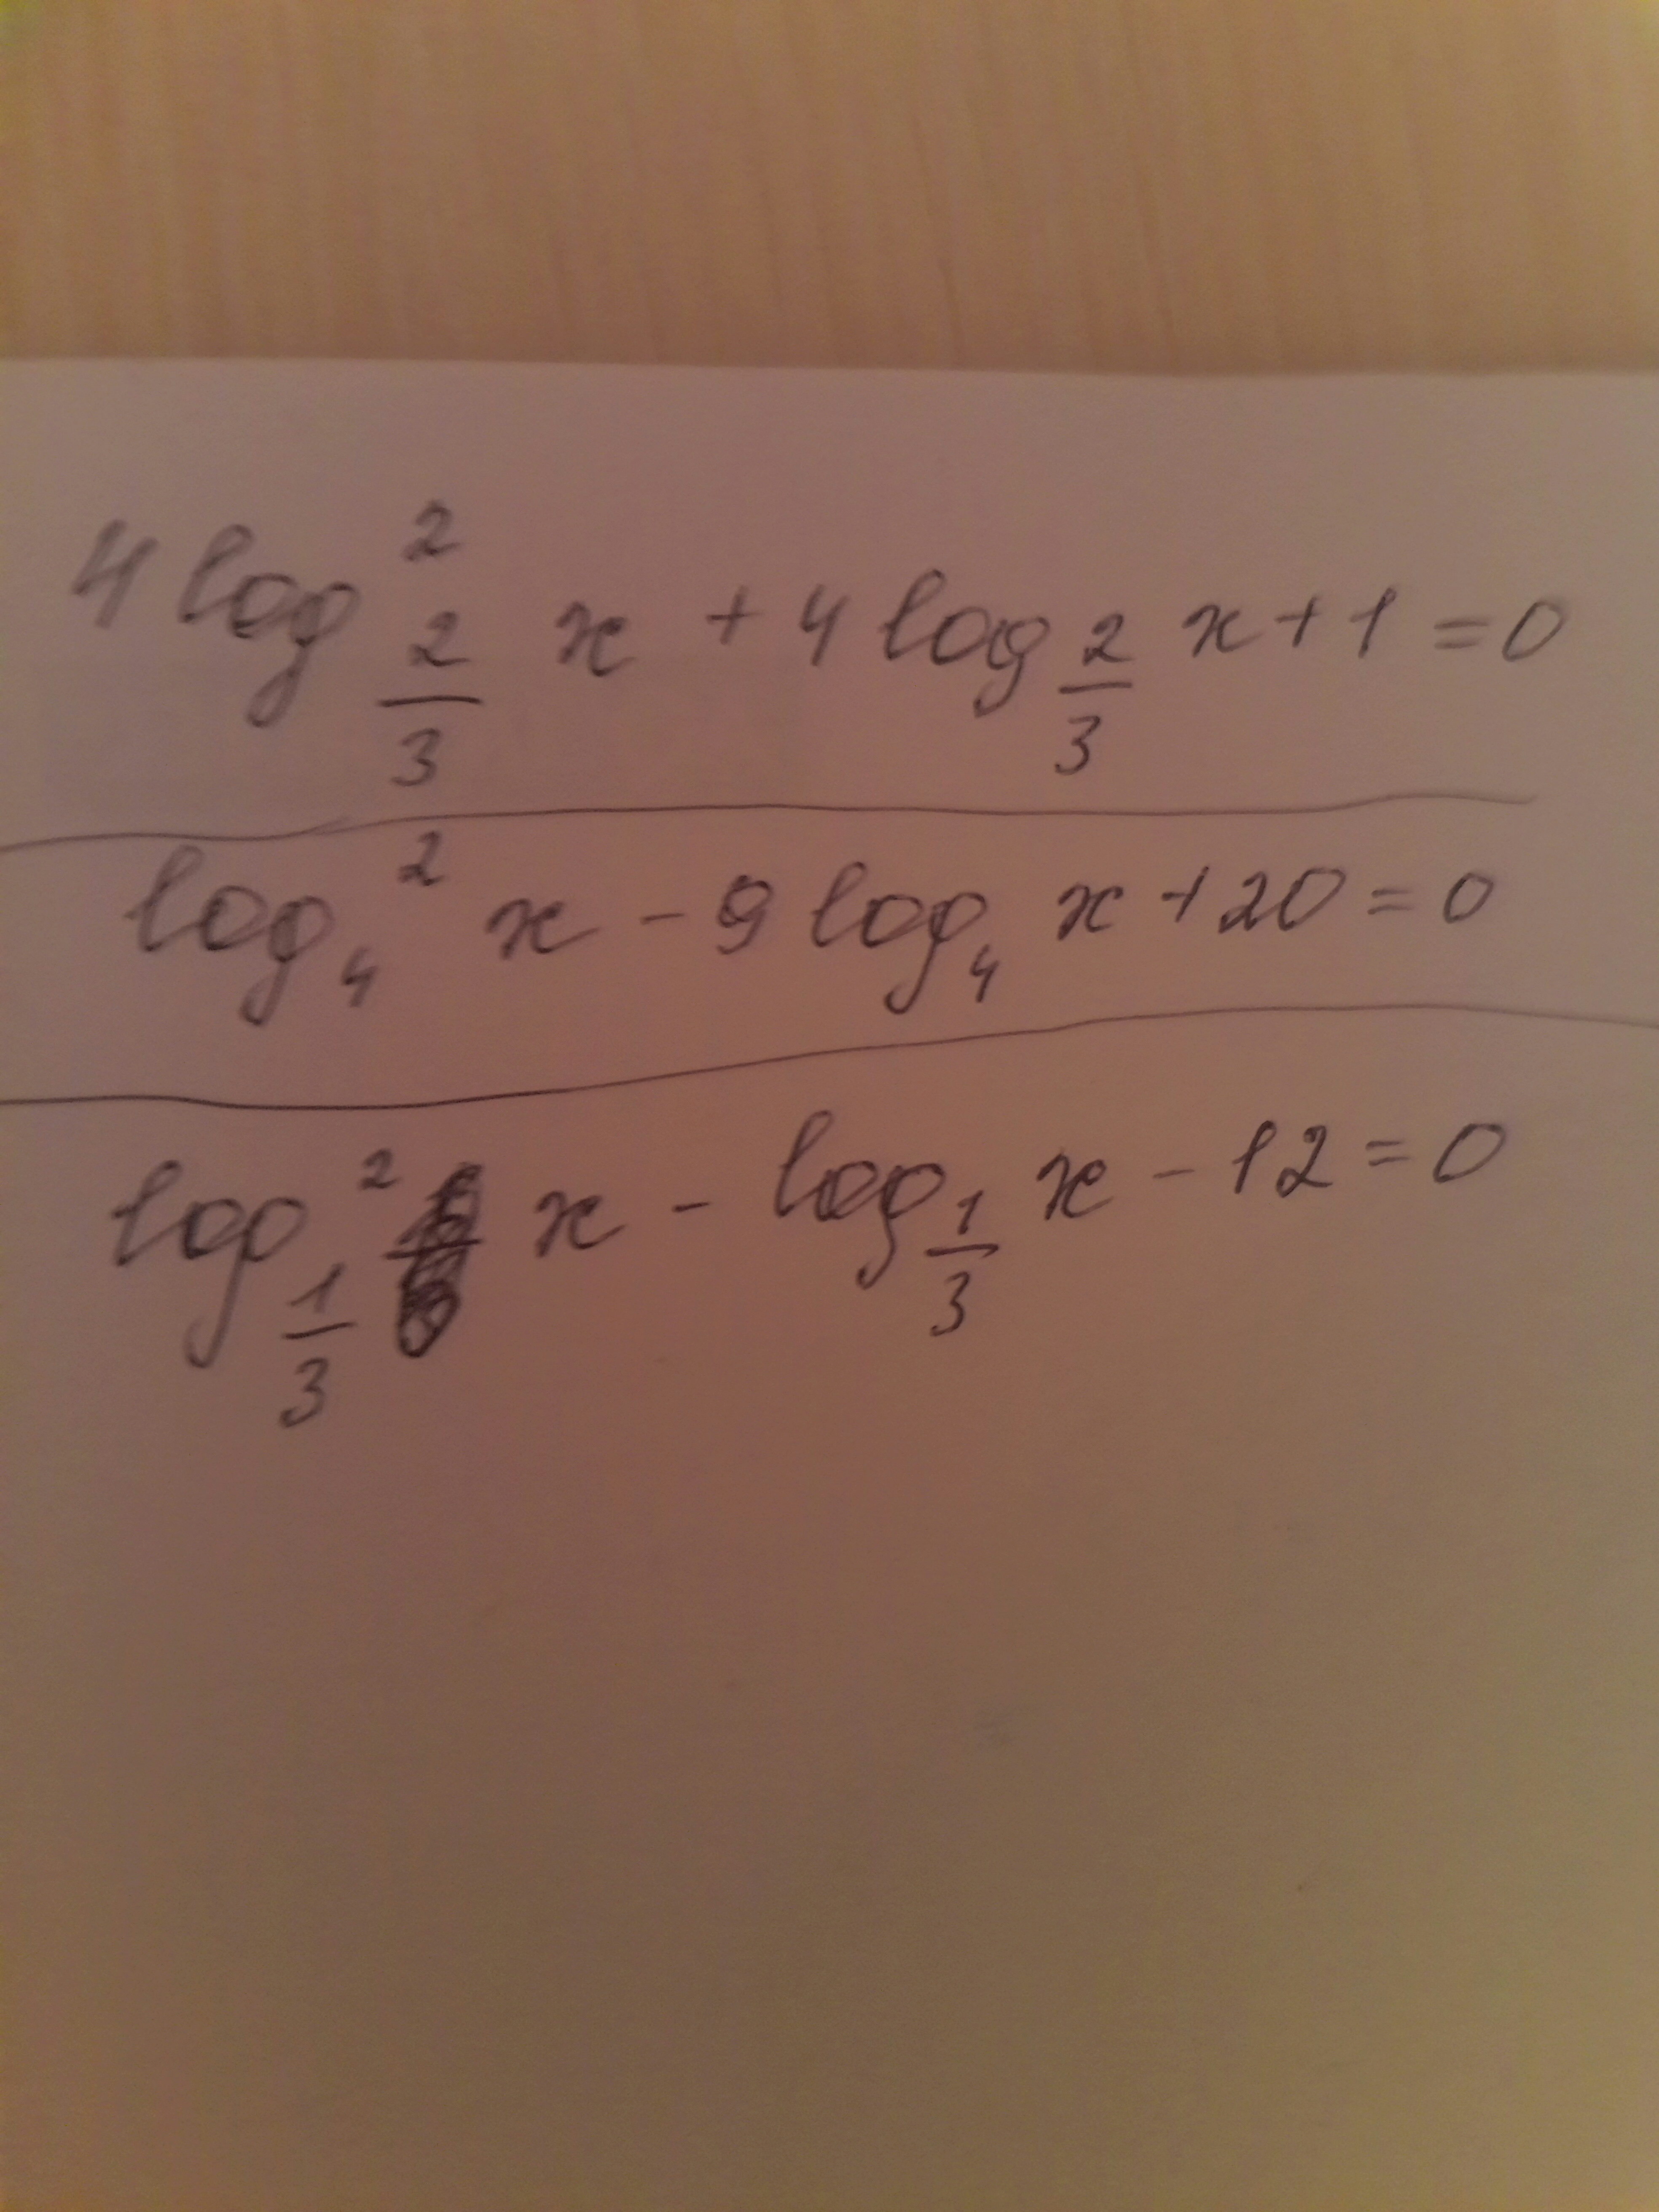 4 log²_{2/3} x + 4 log_{2/3} x + 1 = 0
log_4² x - 9 log_4 x + 20 = 0
log_{1/3}² x - log_{1/3} x - 12 = 0